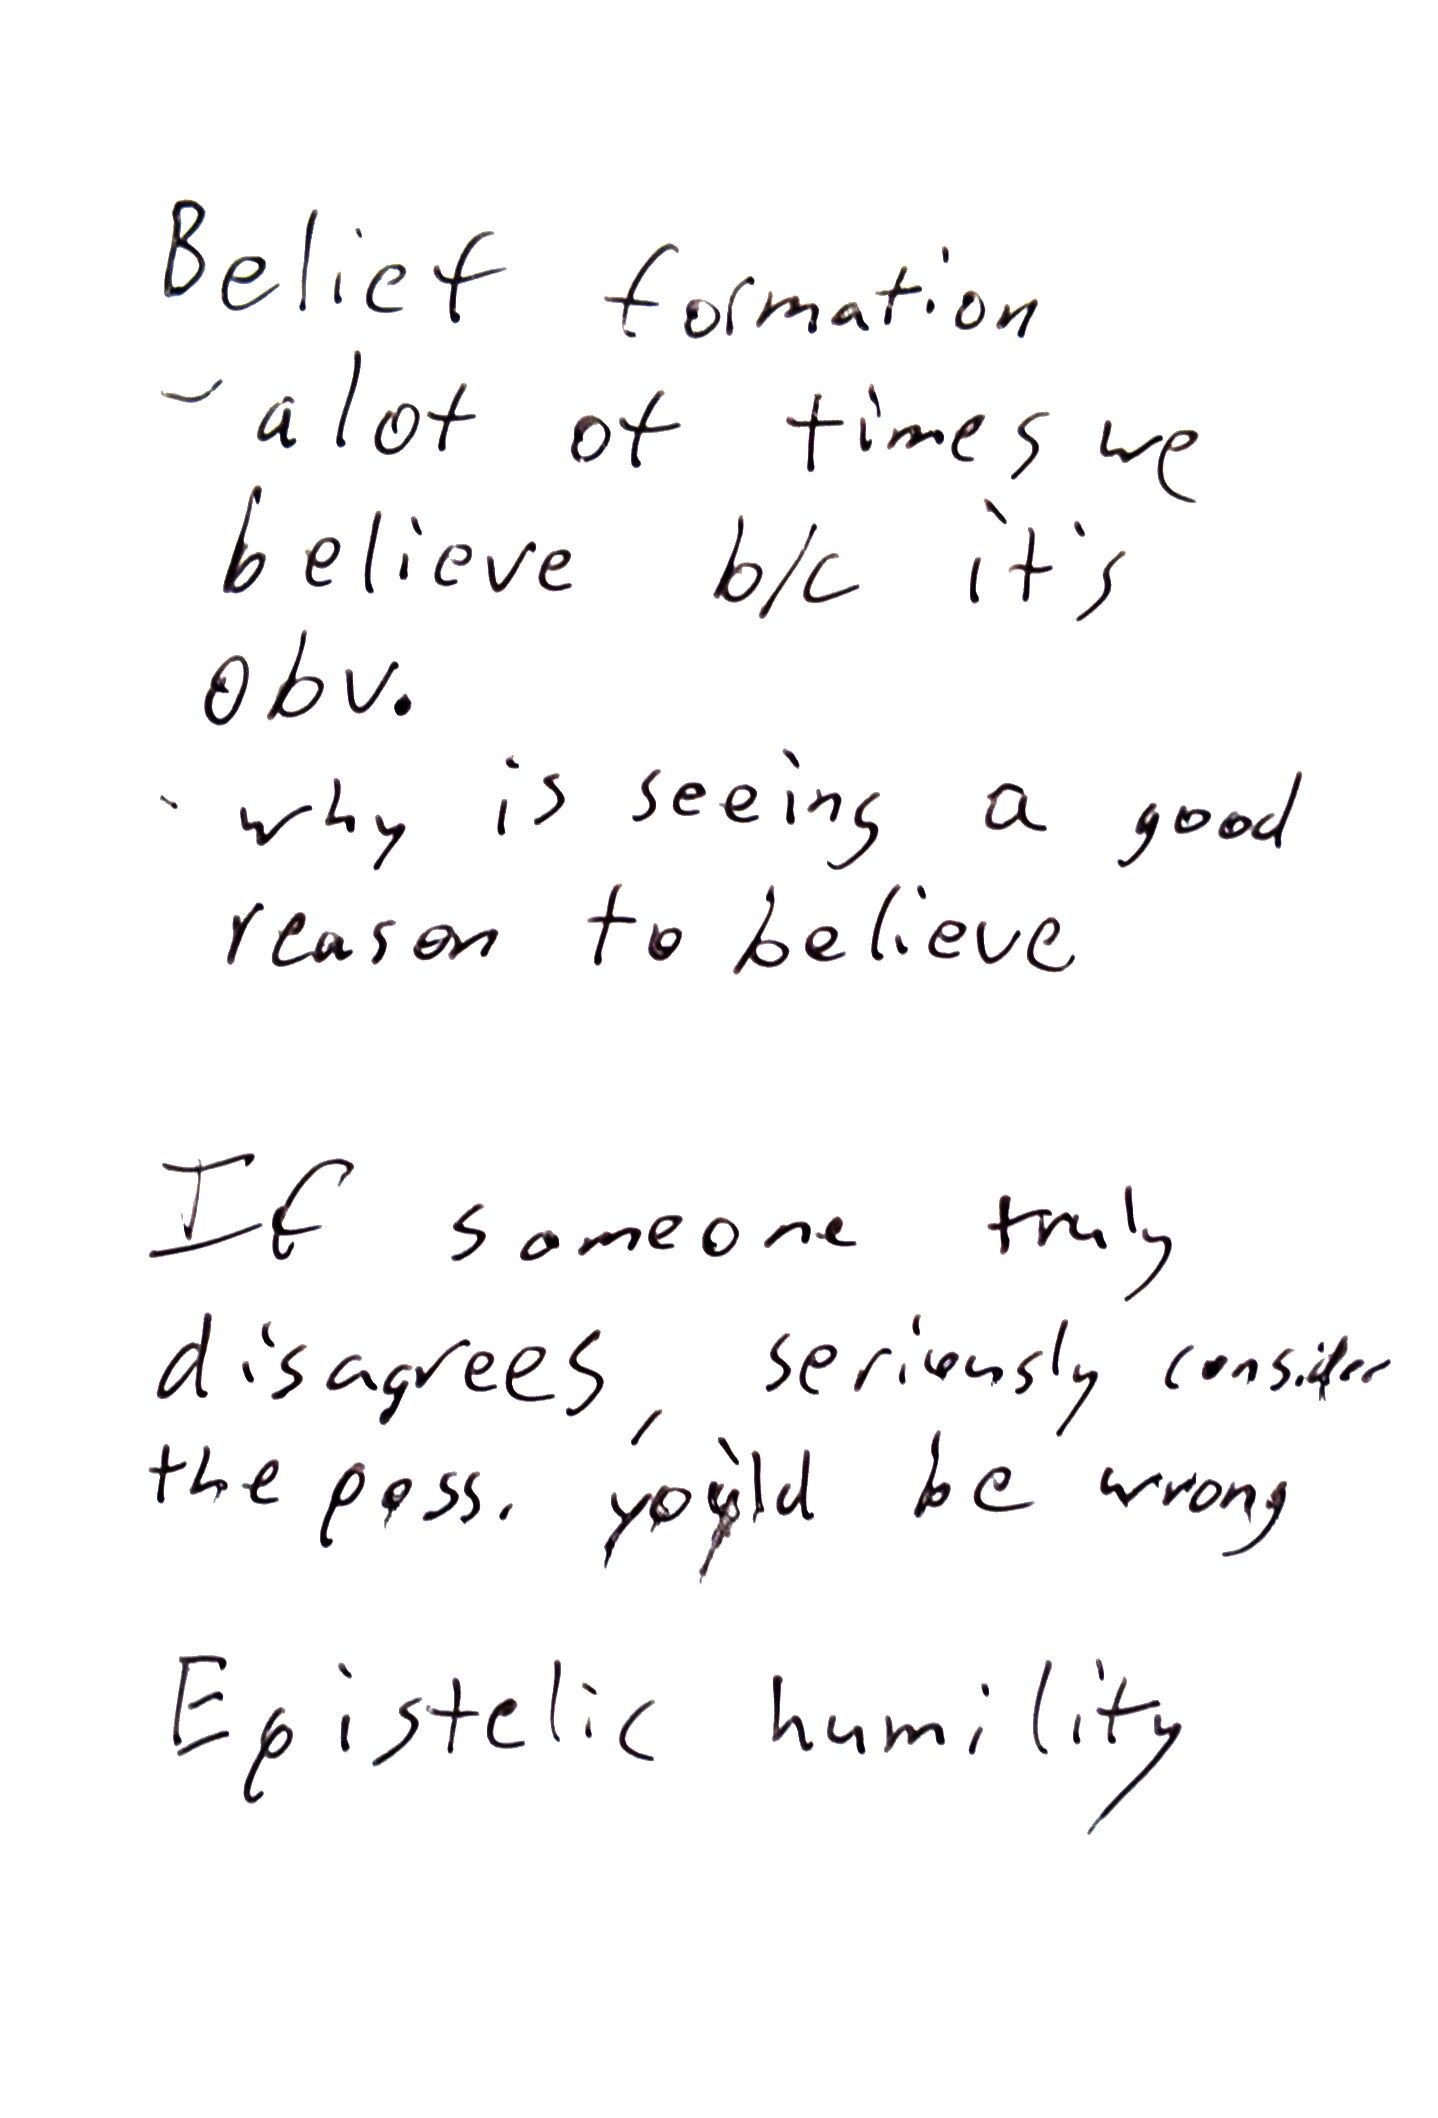 Belief formation
- a lot of times we
believe b/c it's
obv.
- why is seeing a good
reason to believe
If someone truly
disagrees, seriously consider
the poss. you'ld be wrong
Epistelic humility